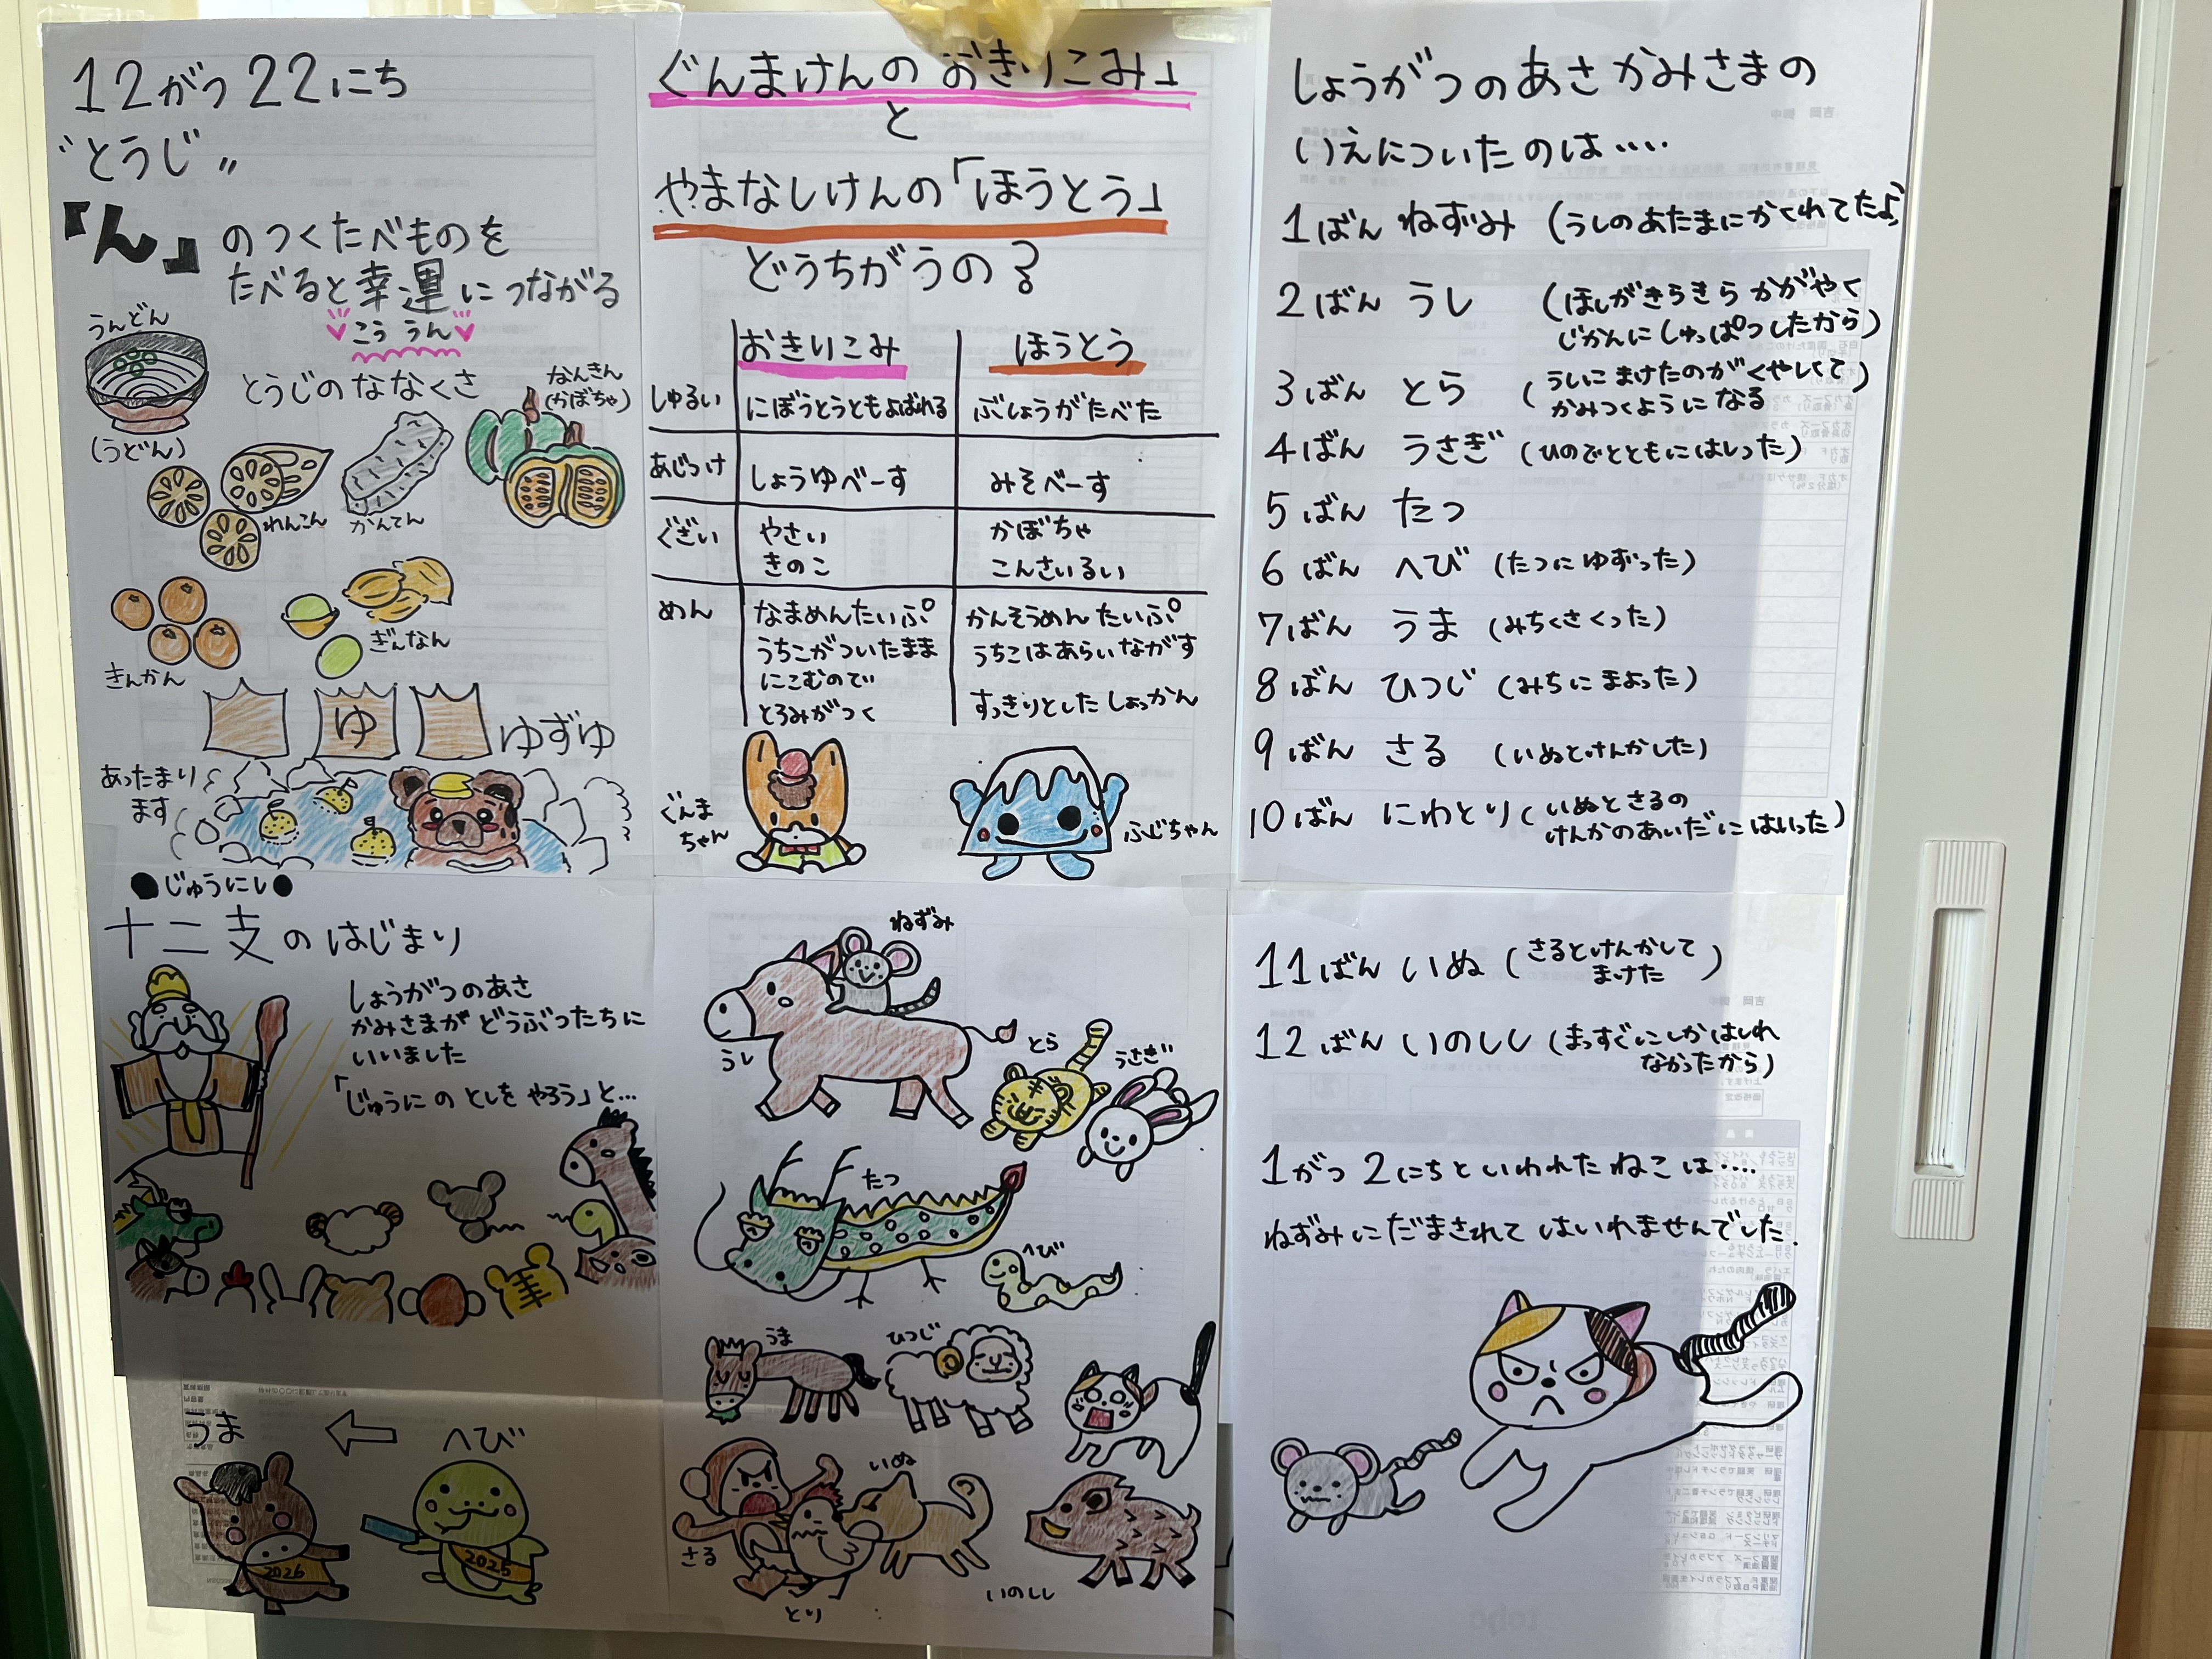 12がつ22にち
"とうじ"
「ん」のつくたべものを
たべると幸運につながる
こううん
うんどん
(うどん)
とうじのななくさ
なんきん
(かぼちゃ)
れんこん
かんてん
きんかん
ぎんなん
ゆ
ゆずゆ
あったまり
ます
ぐんまけんのおきりこみ」
と
やまなしけんの「ほうとう」
どうちがうの?
おきりこみ ほうとう
しゅるい にぼうとうともよばれる ぶしょうがたべた
あじつけ しょうゆべーす みそべーす
ぐざい やさい かぼちゃ
きのこ こんさいるい
めん なまめんたいぷ かんそうめんたいぷ
うちこがついたまま うちこはあらいながす
にこむので
とろみがつく すっきりとしたしょっかん
ぐんま
ちゃん
ふじちゃん
しょうがつのあさかみさまの
いえについたのは‥‥
1ばん ねずみ (うしのあたまにかくれてたよ)
2ばん うし (ほしがきらきらかがやく
じかんにしゅっぱつしたから)
3ばん とら (うしにまけたのがくやしくて
かみつくようになる)
4ばん うさぎ (ひのでとともにはしった)
5ばん たつ
6ばん へび (たつにゆずった)
7ばん うま (みちくさくった)
8ばん ひつじ (みちにまよった)
9ばん さる (いぬとけんかした)
10ばん にわとり (いぬとさるの
けんかのあいだにはいった)
●じゅうにし●
十二支のはじまり
しょうがつのあさ
かみさまがどうぶつたちに
いいました
「じゅうにのとしをやろう」と…
うま
へび
2026
2025
ねずみ
うし
とら
うさぎ
たつ
へび
うま
ひつじ
いぬ
さる
とり
いのしし
11ばん いぬ (さるとけんかして
まけた)
12ばん いのしし (まっすぐにしかはしれ
なかったから)
1がつ2にちといわれたねこは‥‥
ねずみにだまされてはいれませんでした.